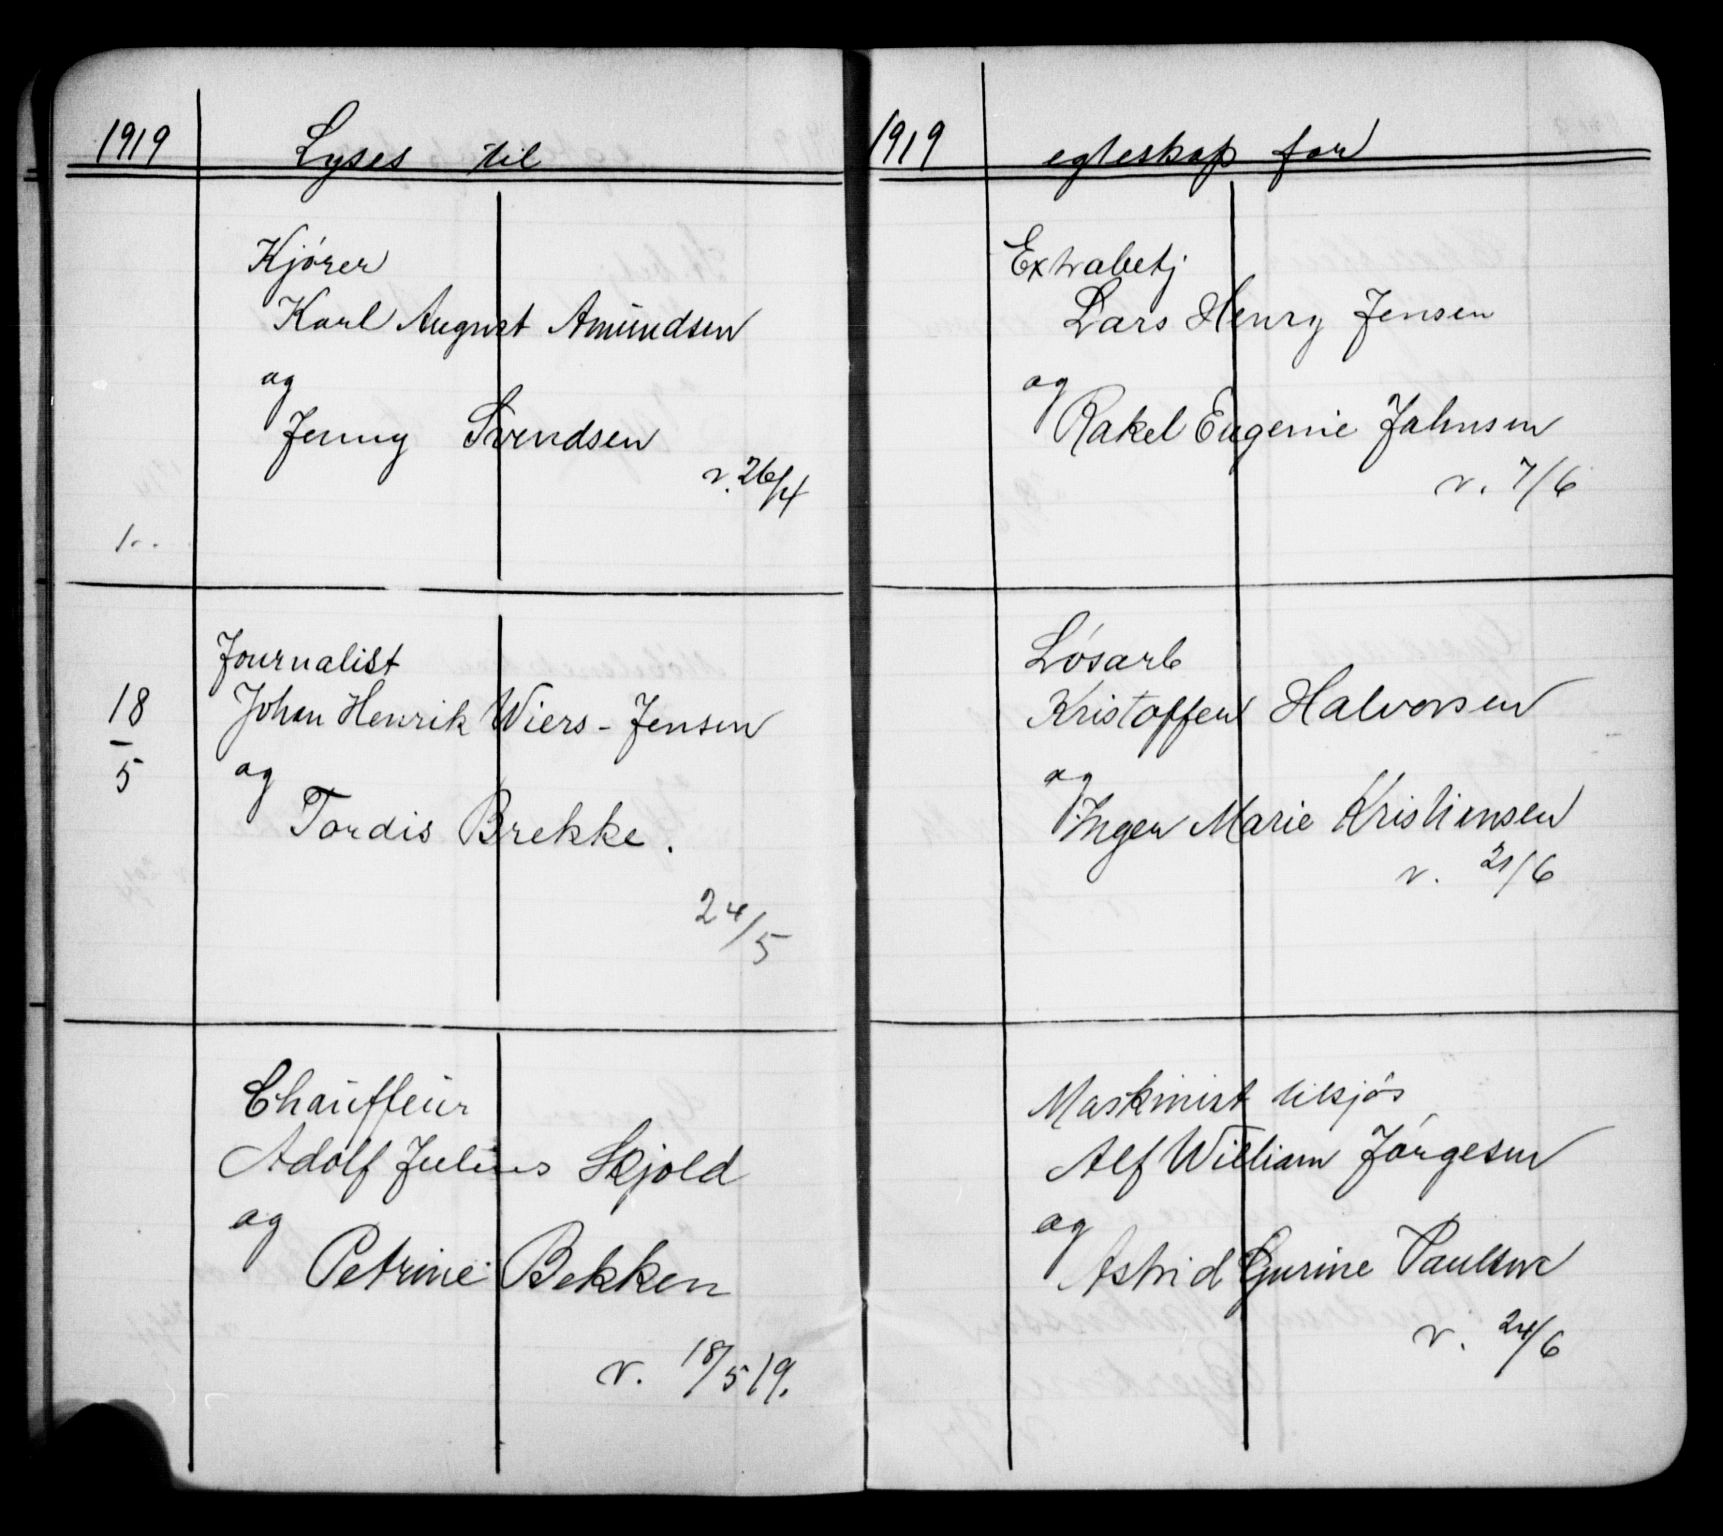 1919 Lyses til
Kjörer
Karl August Amundsen
og
Jenny Svendsen
v. 26/4
1..
Journalist
18
5
Johan Henrik Wiers-Jensen
og
Tordis Brekke.
24/5
Chauffeur
Adolf Julius Skjold
og
Petrine Bekken
v. 18/5 19.
1919 egteskap for
Extrabetj
Lars Henry Jensen
og
Rakel Eugenie Johnsen
v. 7/6
Lösarb
Kristoffer Halvorsen
og
Inger Marie Kristiensen
v. 21/6
Maskinist tilsjös
Alf William Jörgesen
og
Astrid Gurine Paulsen
v. 24/6